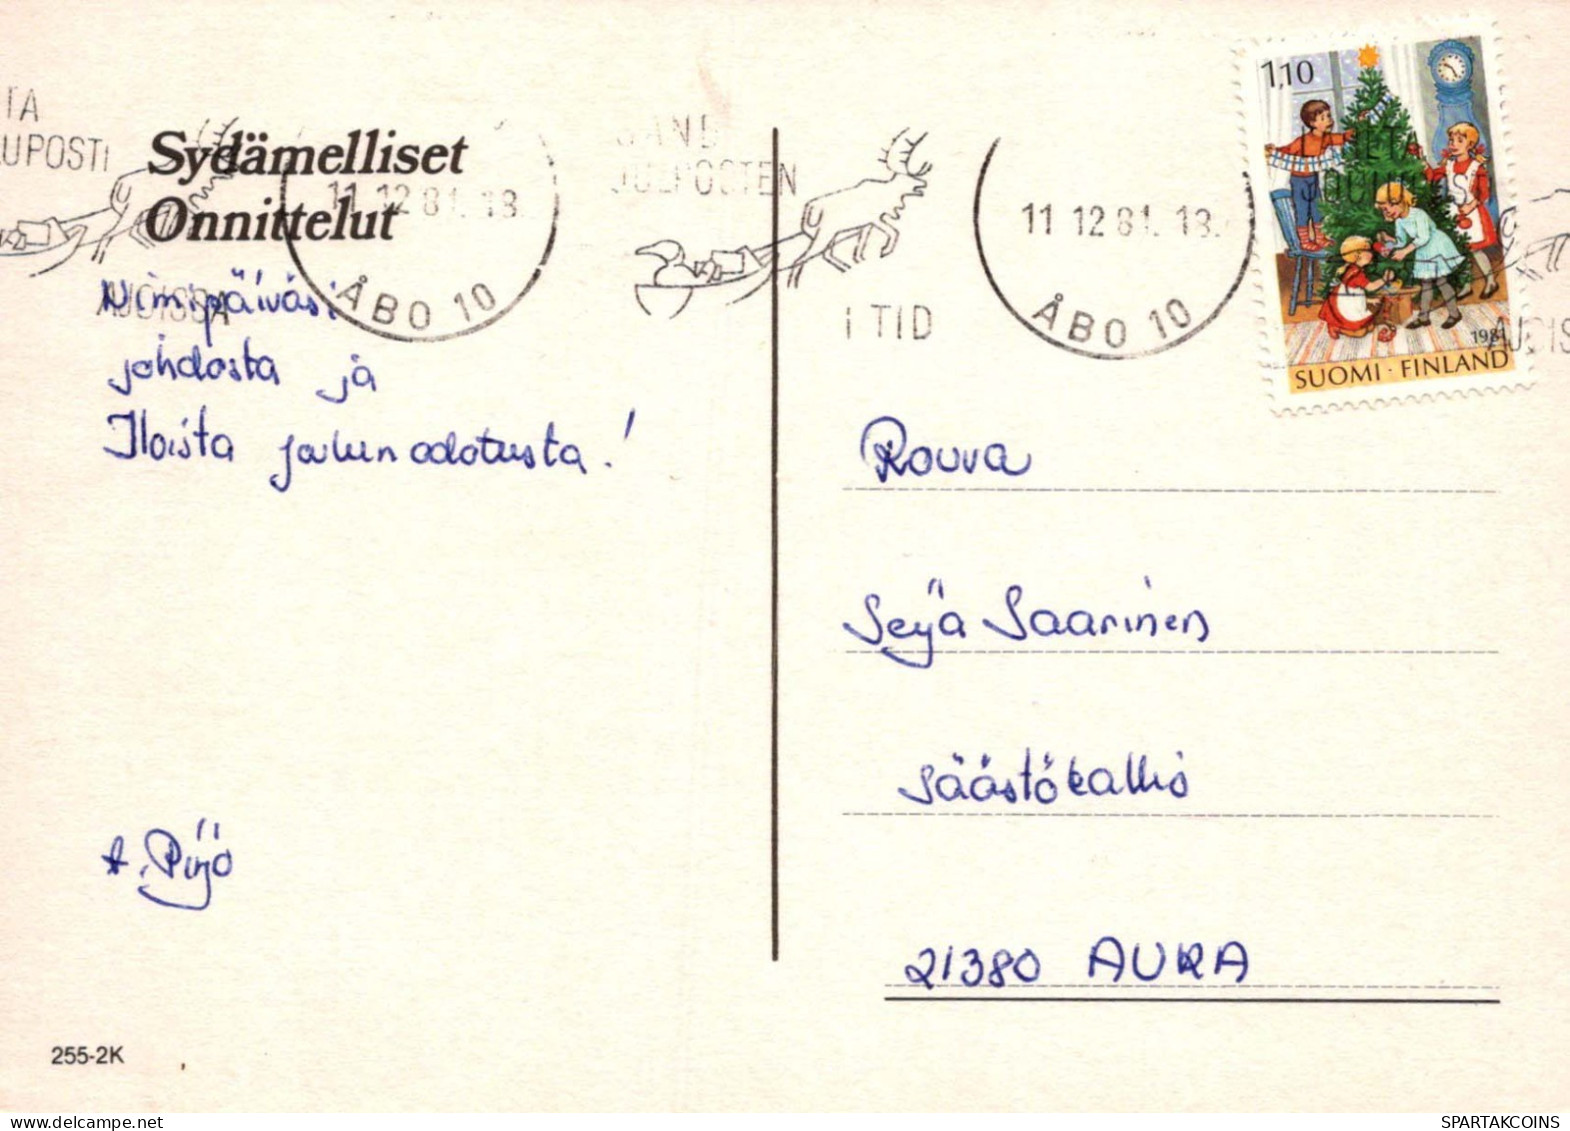 Sydämelliset
Onnittelut
Nimipäiväsi
johdosta ja
Iloista joulun odotusta!
t. Pirjo
255-2K
TA
UPOSTI
AJOISSA
11.12.81.18.
ÅBO 10
SÄND
JULPOSTEN
I TID
11 12 81. 18.
ÅBO 10
1,10
1981
SUOMI · FINLAND
Rouva
Seija Saarinen
Säästökallio
21380 AURA
SPARTAKCOINS